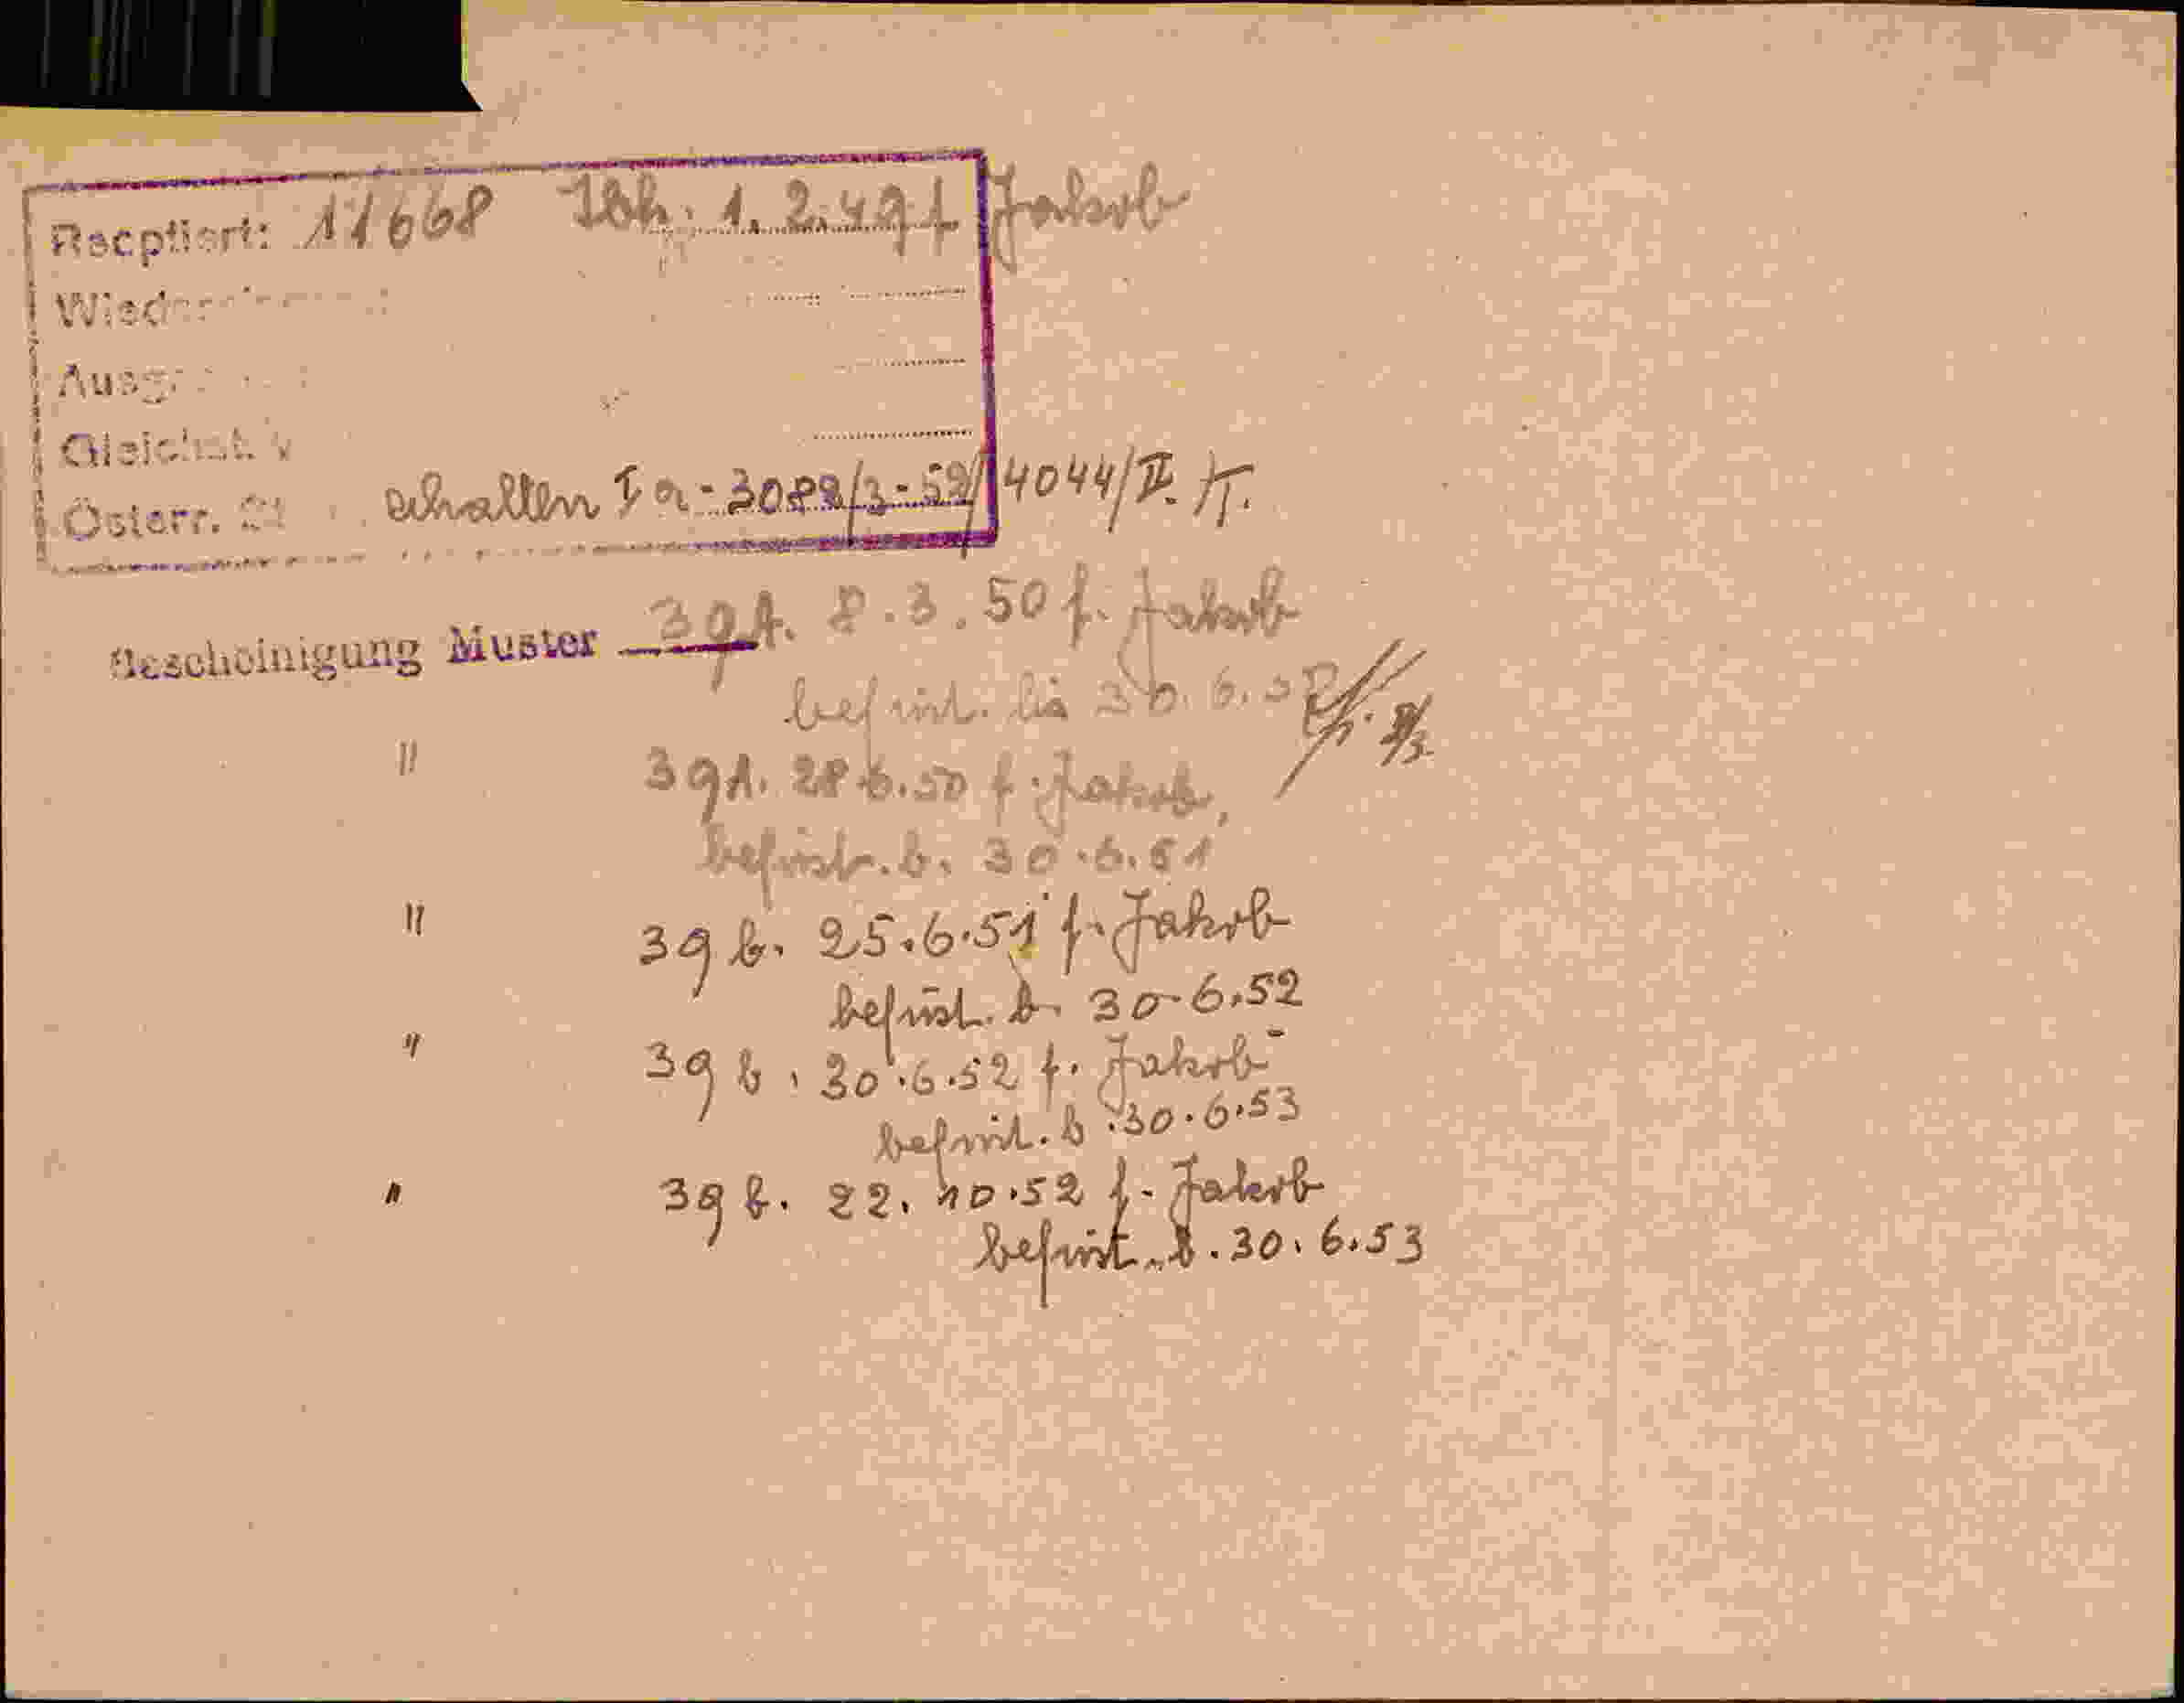 Recptiert: 11668 Idk. 1.2.49 f. Jakob
Ausg
Gleichst. v
Österr. St erhalten Ia-3089/3-52/4044/II. H.
Bescheinigung Muster 39 A. 8.3.50 f. Jakob
befrist. bis 30.6.50
" 39 A. 28.6.50 f. Jakob,
befrist. b. 30.6.51
" 39 b. 25.6.51 f. Jakob
befrist. b. 30.6.52
" 39 b. 30.6.52 f. Jakob
befrist. b. 30.6.53
" 39 b. 22.10.52 f. Jakob
befrist. b. 30.6.53